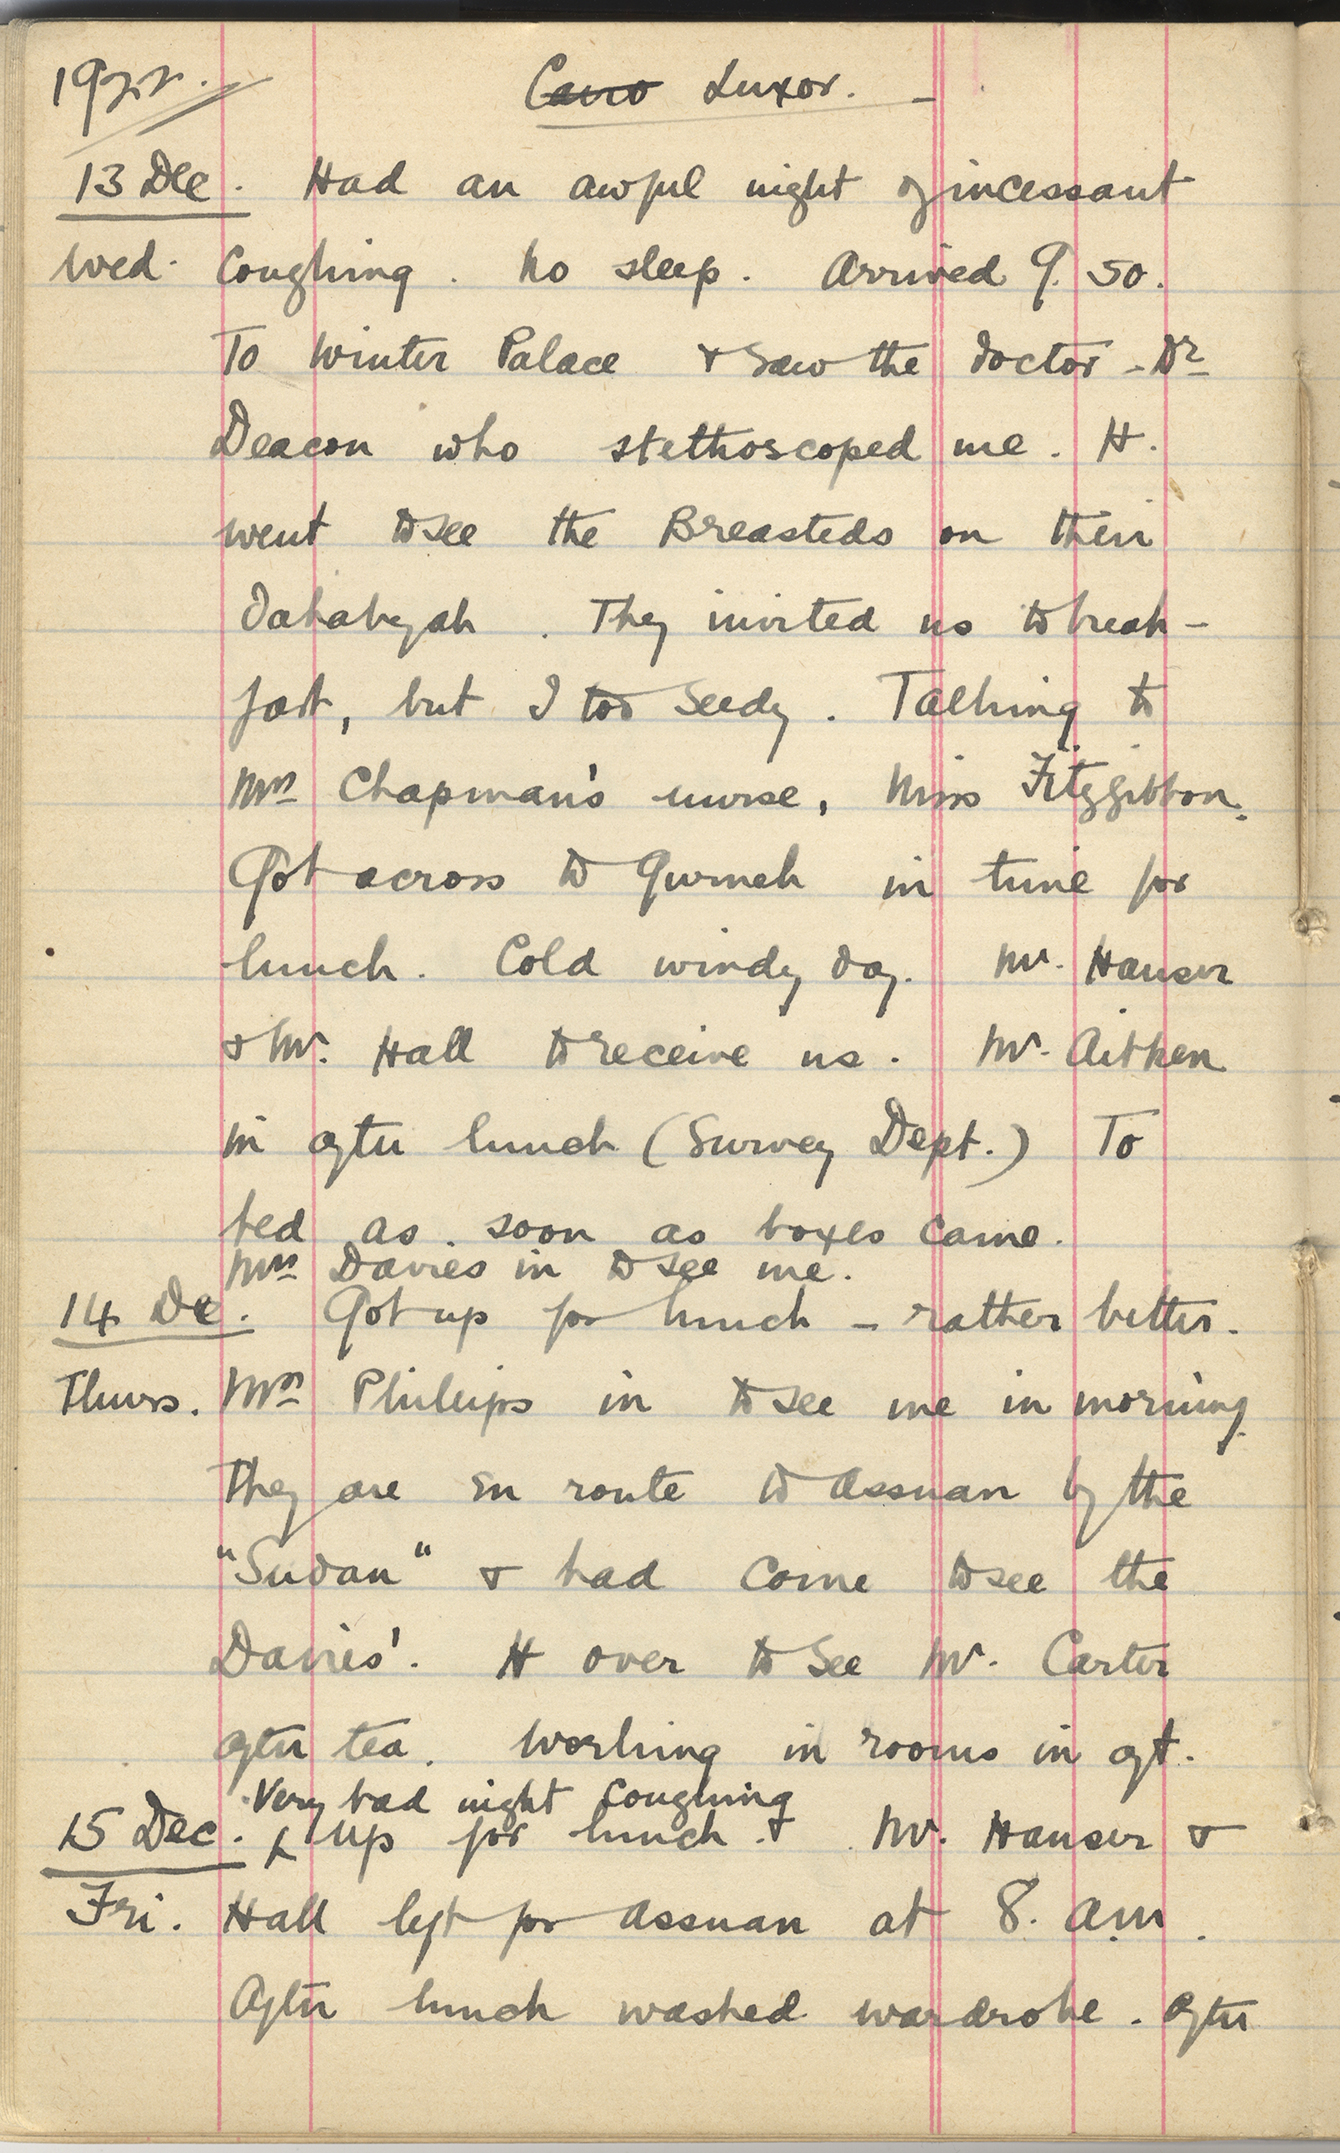 1922.
Cairo Luxor. -
13 Dec. Had an awful night of incessant
Wed. coughing. No sleep. Arrived 9.50.
To Winter Palace & saw the doctor - Dr
Deacon who stethoscoped me. H.
went to see the Breasteds on their
dahabeyah. They invited us to break-
fast, but I too seedy. Talking to
Mrs Chapman's nurse, Miss Fitzgibbon.
Got across to Qurneh in time for
lunch. Cold windy day. Mr. Hauser
& Mr. Hall to receive us. Mr. Aitken
in after lunch (Survey Dept.) To
bed as soon as boxes came.
Mrs Davies in to see me.
14 Dec. Got up for lunch - rather better.
Thurs. Mrs Phillips in to see me in morning
They are en route to Assuan by the
"Sudan" & had come to see the
Davies'. H over to see Mr. Carter
after tea. Working in rooms in aft.
Very bad night coughing
15 Dec. Up for lunch. & Mr. Hauser &
Fri. Hall left for Assuan at 8. a.m.
After lunch washed wardrobe. After